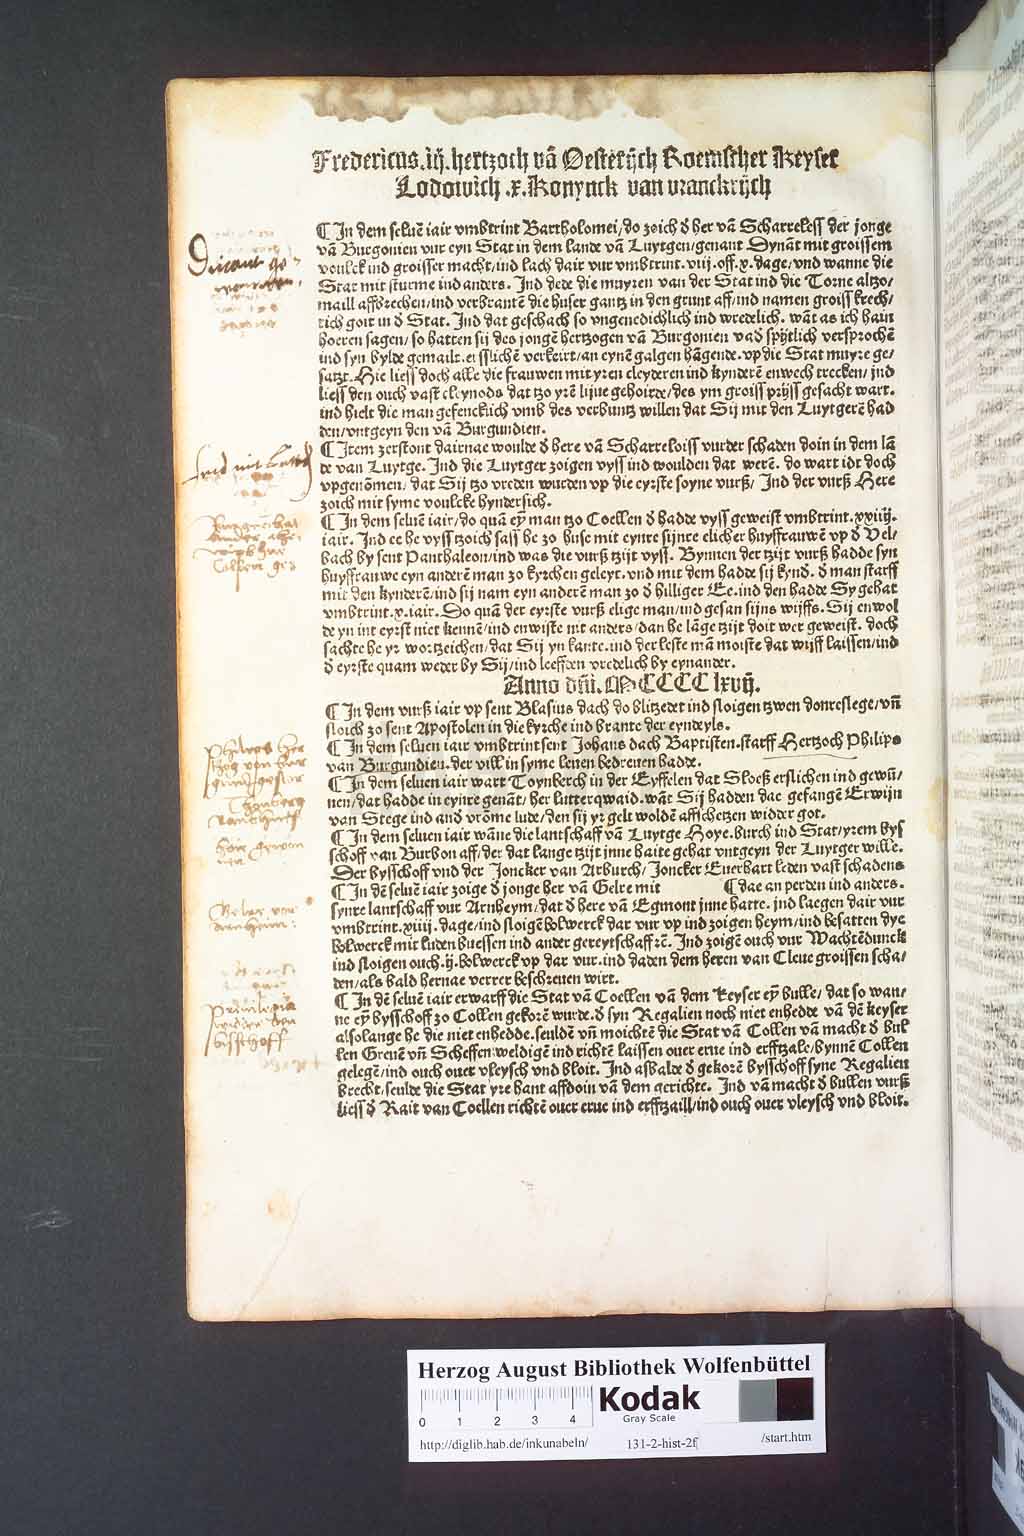 Fredericus.iij.hertzoch vā Oesterijch Roemscher Keyser
Lodowich .x. Konynck van vranckrijch
¶ In dem seluē iair vmbtrint Bartholomei/do zoich d̄ her vā Scharreless der jonge
vā Burgonien vur eyn Stat in dem lande vā Luytgen/genant Dynāt mit groissem
voulck ind groisser macht/ind lach dair vur vmbtrint.viij.off.x.dage/vnd wanne die
Stat mit sturme ind anders. Ind dede die muyren van der Stat ind die Torne altzo/
maill affbrechen/ind verbrantē die huser gantz in den grunt aff/ind namen groiss krech/
tich goit in d̄ Stat. Ind dat geschach so vngenedichlich ind wredelich. wāt as ich hain
hoeren sagen/so hatten sij des jongē hertzogen vā Burgonien vad̄ spijtlich versprochē
ind syn bylde gemailt. verkeirt/an eynē galgen hāgende.vp die Stat muyre ge/
satzt. Hie liess doch alle die frauwen mit yren cleyderen ind kynderē enwech trecken/ind
liess den ouch vast cleynods dat tzo yrē lijue gehoirde/des ym groiss prijss gesacht wart.
ind hielt die man gefencklich vmb des verbuntz willen dat Sij mit den Luytgerē had
den/vntgeyn den vā Burgundien.
¶ Item zerstont dairnae woulde d̄ here vā Scharreloiss vurder schaden doin in dem lā
de van Luytge. Ind die Luytger zoigen vyss ind woulden dat werē. do wart idt doch
vpgenōmen/dat Sij tzo vreden wurden vp die eyrste soyne vurß/ Ind der vurß Here
zoich mit syme voulcke hyndersich.
¶ In dem seluē iair/do quā eȳ man tzo Coellen d̄ hadde vyss geweist vmbtrint.xxiiij.
iair. Ind ee he vyss tzoich sass he zo huse mit eynre sijnre elicher huysfrauwē vp d̄ Vel/
bach by sent Panthaleon/ind was die vurß tzijt vyss. Bynnen der tzijt vurß hadde syn
huysfrauwe eyn anderē man zo kyrchen geleyt.vnd mit dem hadde sij kynd. d̄ man starff
mit den kynderē/ind sij nam eyn anderē man zo d̄ hilliger Ee.ind den hadde Sy gehat
vmbtrint.x.iair. Do quā der eyrste vurß elige man/ind gesan sijns wijffs. Sij enwol
de yn int eyrst niet kennē/ind enwiste nit anders/dan he lāge tzijt doit wer geweist. doch
sachte he yr wortzeichen/dat Sij yn kante.ind der leste mā moiste dat wijff laissen/ind
d̄ eyrste quam weder by Sij/ind leefden vredelich by eynander.
Anno dñi. MCCCC lxvij.
¶ In dem vurß iair vp sent Blasius dach do blitzedet ind sloigen tzwen donreslege/vñ
sloich zo sent Apostolen in die kyrche ind brante der eyndeyls.
¶ In dem seluen iair vmbtrint sent Johans dach Baptisten.starff Hertzoch Philips
van Burgundien.der vill in syme leuen bedreuen hadde.
¶ In dem seluen iair wart Toynberch in der Eyffelen dat Sloeß erslichen ind gewū/
nen/dat hadde in eynre genāt/her lutterqwaid.wāt Sij hadden dae gefangē Erwijn
van Stege ind and̄ vrōme lude/den sij yr gelt woldē affschetzen widder got.
¶ In dem seluen iair wāne die lantschaff vā Luytge Hoye.burch ind Stat/yrem bys
schoff van Burbon aff/der dat lange tzijt jnne haite gehat vntgeyn der Luytger wille.
Der bysschoff vnd der Joncker van Arburch/Joncker Euerhart leden vast schadens
¶ In dē seluē iair zoige d̄ jonge her vā Gelre mit ¶ dae an perden ind anders.
synre lantschaff vur Arnheym/dat d̄ here vā Egmont jnne hatte. ind laegen dair vur
vmbtrint.xiiij.dage/ind sloigē bolwerck dar vur vp ind zoigen heym/ind besatten dye
bolwerck mit luden buessen ind ander gereytschaffzē. Ind zoigē ouch vur Wachtēdunck
ind sloigen ouch.ij.bolwerck vp dar vur.ind daden dem heren van Cleue groissen scha/
den/als bald hernae verrer beschreuen wirt.
¶ In dē seluē iair erwarff die Stat vā Coellen vā dem keyser eȳ bulle/dat so wan/
ne eȳ bysschoff zo Collen gekorē wurde.d̄ syn Regalien noch niet enhedde vā dē keyser
alsolange he die niet enhedde.seuldē vñ moichtē die Stat vā Collen vā macht d̄ bul
len Greuē vñ Scheffen weldigē ind richtē laissen ouer erue ind erfftzale/bynnē Collen
gelegē/ind ouch ouer vleysch vnd bloit. Ind asbalde d̄ gekorē bysschoff syne Regalien
brecht/seulde die Stat yre hant affdoin vā dem gerichte. Ind vā macht d̄ bullen vurß
liess d̄ Rait van Coellen richtē ouer erue ind erfftzaill/ind ouch ouer vleysch vnd bloit.
Herzog August Bibliothek Wolfenbüttel
0 1 2 3 4
Kodak
Gray Scale
http://diglib.hab.de/inkunabeln/ 131-2-hist-2f /start.htm